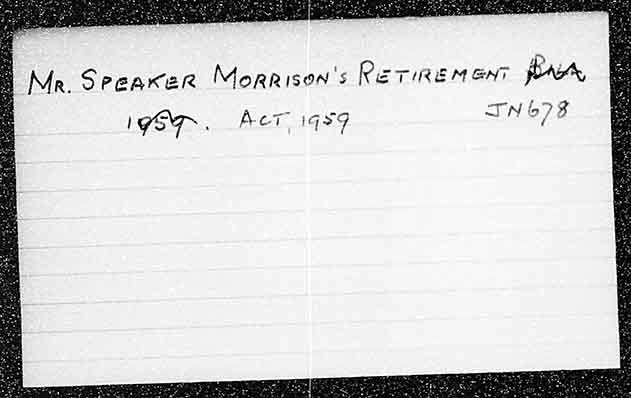 MR. SPEAKER MORRISON'S RETIREMENT
1959. ACT, 1959 JN678